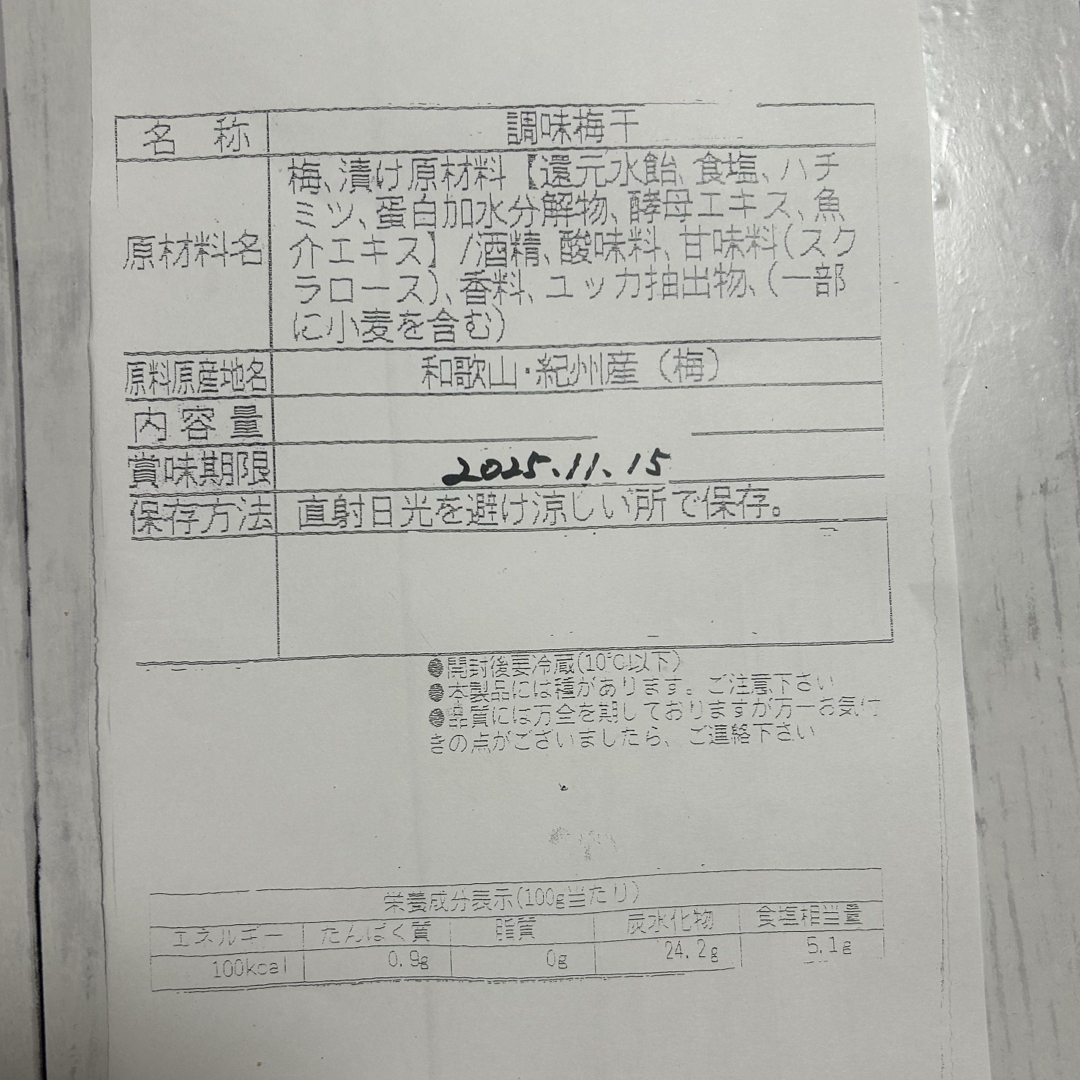 名 称 調味梅干
原材料名
梅、漬け原材料【還元水飴、食塩、ハチ
ミツ、蛋白加水分解物、酵母エキス、魚
介エキス】/酒精、酸味料、甘味料(スク
ラロース)、香料、ユッカ抽出物、(一部
に小麦を含む)
原料原産地名 和歌山・紀州産(梅)
内容量
賞味期限 2025.11.15
保存方法 直射日光を避け涼しい所で保存。
●開封後要冷蔵(10℃以下)
●本製品には種があります。ご注意下さい
●品質には万全を期しておりますが万一お気付
きの点がございましたら、ご連絡下さい
栄養成分表示(100g当たり)
エネルギー たんぱく質 脂質 炭水化物 食塩相当量
100kcal 0.9g 0g 24.2g 5.1g